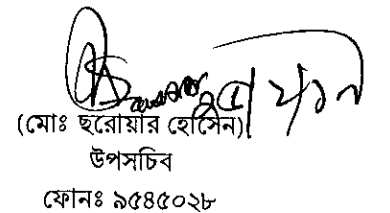 (মোঃ ছরোয়ার হোসেন)
উপসচিব
ফোনঃ ৯৫৪৫০২৮